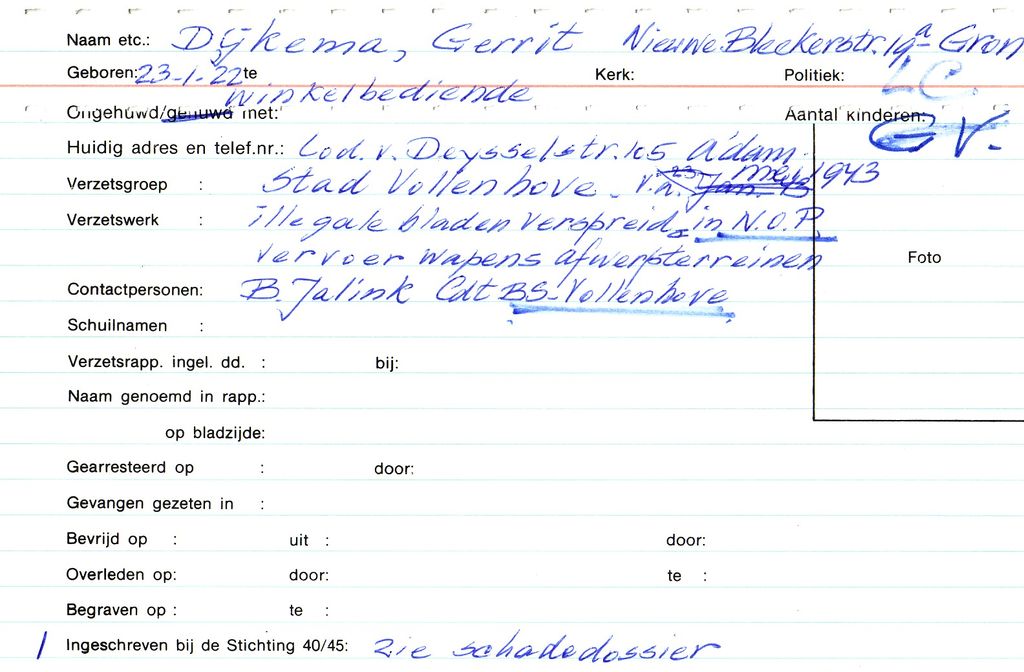 Naam etc.: Dijkema, Gerrit Nieuwe Blekerstr. 19a Gron
Geboren: 23-1-22 te Kerk: Politiek: LC
winkelbediende
Ongehuwd/gehuwd met: Aantal kinderen:
GV.
Huidig adres en telef.nr.: Lod. v. Deysselstr. 165 A'dam.
Verzetsgroep : Stad Vollenhove. v.a. 23 mei 1943
Verzetswerk : illegale bladen verspreid in N.O.P.
vervoer wapens afwerpterreinen
Foto
Contactpersonen: B. Jalink Cdt BS-Vollenhove
Schuilnamen :
Verzetsrapp. ingel. dd. : bij:
Naam genoemd in rapp.:
op bladzijde:
Gearresteerd op : door:
Gevangen gezeten in :
Bevrijd op : uit : door:
Overleden op: door: te :
Begraven op : te :
Ingeschreven bij de Stichting 40/45: zie schadedossier